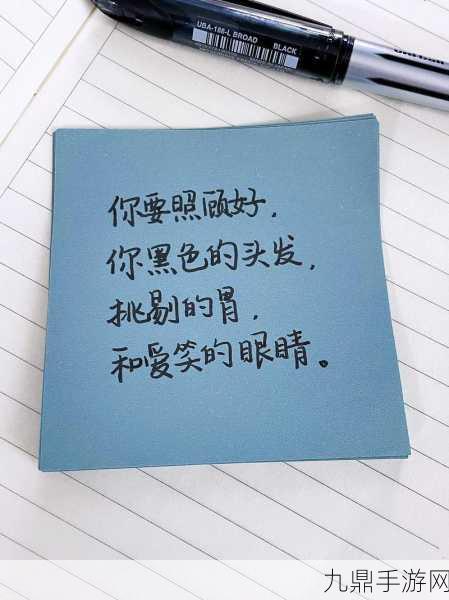 UBA-188-L BROAD BLACK
你要照顾好，
你黑色的头发，
挑剔的胃，
和爱笑的眼睛。
九鼎手游网